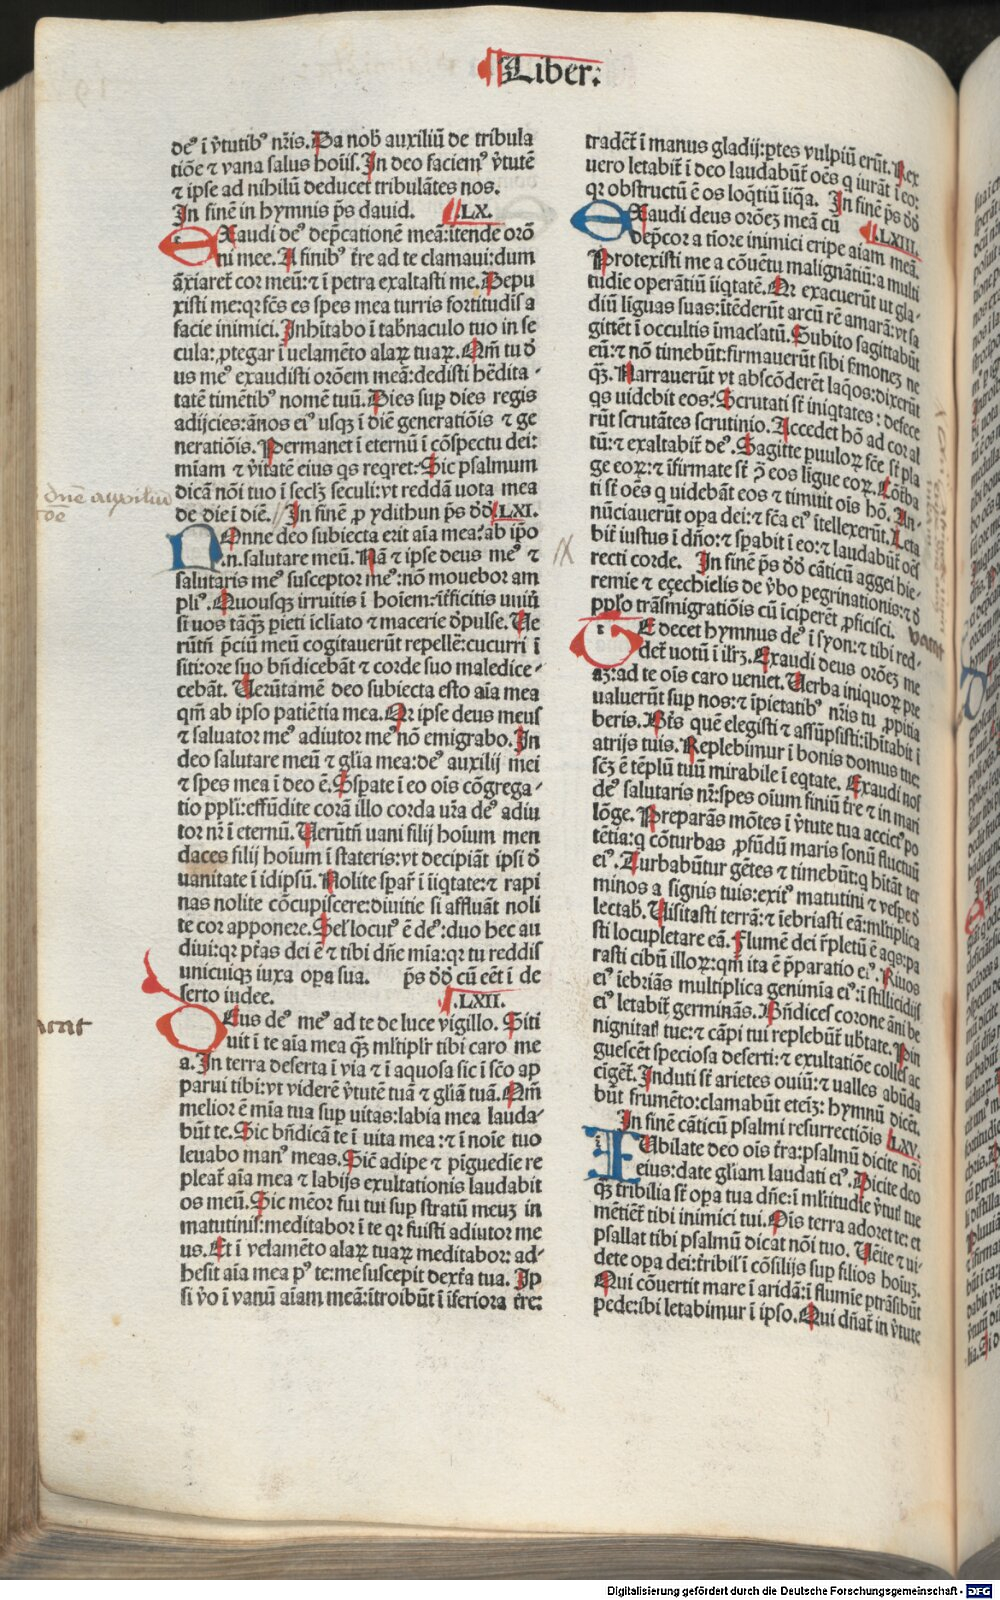 Liber.
deꝰ ī v̄tutibꝰ nr̄is. Da nob̄ auxiliū de tribula
tiōe ⁊ vana salus hoīis. In deo faciemꝰ v̄tutē
⁊ ipse ad nihilū deducet tribulātes nos.
In finē in hymnis p̄s david. LX.
EXaudi deꝰ dep̄cationē meā: ītende orō
ni mee. A finibꝰ t̄re ad te clamaui: dum
āxiaret̄ cor meū: ⁊ ī petra exaltasti me. Depu
xisti me: qr fc̄s es spes mea turris fortitudīs a
facie inimici. Inhītabo ī tab̄naculo tuo in se
cula: ꝓtegar ī uelamēto alaꝝ tuaꝝ. Qm̄ tu d̄
us meꝰ exaudisti orōem meā: dedisti hēdita-
tatē timētibꝰ nomē tuū. Dies sup dies regis
adijcies: ānos eiꝰ usqꝫ ī diē generatiōis ⁊ ge
neratiōis. Permanet ī eternū ī cōspectu dei:
mīam ⁊ v̄itatē eius qs reqret: Sic psalmum
dicā nōi tuo ī seclꝫ seculi: vt reddā uota mea
de die ī diē. In finē ꝓ ydithun p̄s dd̄ LXI.
NOnne deo subiecta erit aīa mea: ab ipo
.n. salutare meū. Nā ⁊ ipse deus meꝰ ⁊
salutaris meꝰ susceptor meꝰ: nō mouebor am
pliꝰ. Quousqꝫ irruitis ī hoīem: īt̄ficitis uniū
si uos tāqꝫ ꝑieti īcliato ⁊ macerie d̄pulse. Ve
rūtn̄ p̄ciū meū cogitauerūt repellē: cucurri ī
siti: ore suo bn̄dicebāt ⁊ corde suo maledice-
cebāt. Verūtamē deo subiecta esto aīa mea
qm̄ ab ipso patiētia mea. Qr ipse deus meus
⁊ saluator meꝰ adiutor meꝰ nō emigrabo. In
deo salutare meū ⁊ glīa mea: deꝰ auxilij mei
⁊ spes mea ī deo ē. Sperate ī eo oīs cōgrega-
tio ppl̄i: effūdite corā illo corda ur̄a deꝰ adiu
tor nr̄ ī eternū. Verūtn̄ uani filij hoīum men
daces filij hoīum ī stateris: vt decipiāt ipsi d̄
uanitate ī idipsū. Nolite sꝑar̄ ī īiqtate: ⁊ rapi
nas nolite cōcupiscere: diuitie si affluāt noli
te cor apponere. Sel̄ locutꝰ ē dꝰ: duo hec au
diui: qr ptās dei ē ⁊ tibi dn̄e mīa: qr tu reddis
unicuiqꝫ iuxa oꝑa sua. p̄s dd̄ cū eēt ī de
serto iudee. LXII.
DEus deꝰ meꝰ ad te de luce vigillo. Siti
uit ī te aīa mea qꝫ ml̄tiplr̄ tibi caro me
a. In terra deserta ī via ⁊ ī aquosa sic ī sc̄o ap
parui tibi: vt viderē v̄tutē tuā ⁊ glīā tuā. Qm̄
melior ē mīa tua sup uitas: labia mea lauda-
būt te. Sic bn̄dicā te ī uita mea: ⁊ ī noīe tuo
leuabo manꝰ meas. Sic̄ adipe ⁊ pīguedie re
pleat̄ aīa mea ⁊ labijs exultationis laudabit
os meū. Sic mēor fui tui sup stratū meuꝫ in
matutinis: meditabor ī te qr fuisti adiutor me
us. Et ī velamēto alaꝝ tuaꝝ meditabor: ad-
hesit aīa mea pꝰ te: me suscepit dext̄a tua. Ip
si v̄o ī vanū aīam meā: ītroibūt ī īferiora t̄re:
tradēt̄ ī manus gladij: ꝑtes vulpiū erūt. Rex
vero letabit̄ ī deo laudabūt̄ oēs q iurāt ī eo:
qr obstructū ē os loq̄tiū īiqa. In finē p̄s dd̄
EXaudi deus orōeꝫ meā cū LXIII.
dep̄cor a tiore inimici eripe aīam meā.
Protexisti me a cōuētu malignātiū: a multi
tudie operātiū īiqtatē. Qr exacuerūt ut gla-
diū līguas suas: ītēderūt arcū rē amarā: vt sa
gittēt ī occultis īmacl̄atū. Subito sagittabūt
eū: ⁊ nō timebūt: firmauerūt sibi s̄moneꝫ ne
qꝫ. Narrauerūt vt abscōderēt laq̄os: dixerūt
qs uidebit eos? Scrutati st̄ iniqtates: defece
rūt scrutātes scrutinio. Accedet hō ad cor al
tū: ⁊ exaltabit̄ deꝰ. Sagitte puuloꝝ fc̄e st̄ pla
ge eoꝝ: ⁊ īfirmate st̄ ꝯ̄ eos līgue eoꝝ. Cōt̄ba
ti st̄ oēs q uidebāt eos ⁊ timuit oīs hō. An-
nūciauerūt opa dei: ⁊ fc̄a eiꝰ ītellexerūt. Leta
bit̄ iustus ī dn̄o: ⁊ sꝑabit ī eo: ⁊ laudabūt̄ oēs
recti corde. In finē p̄s dd̄ cāticū aggei hie-
remie ⁊ eꝫechielis de v̄bo ꝑegrinationis: ⁊ d̄
ppl̄o trāsmigratiōis cū īciperēt ꝓficisci.
TE decet hymnus deꝰ ī syon: ⁊ tibi red-
det̄ uotū ī ilr̄ꝫ. Exaudi deus orōeꝫ me
aꝫ: ad te oīs caro ueniet. Verba iniquoꝝ pre
ualuerūt sup nos: ⁊ īpietatibꝰ nr̄is tu ꝓpitia
beris. Btūs quē elegisti ⁊ assūpsisti: īhītabit ī
atrijs tuis. Replebimur ī bonis domus tue:
sc̄ꝫ ē tēplū tuū mirabile ī eqtate. Exaudi nos
deꝰ salutaris nr̄: spes oīum finiū t̄re ⁊ in mari
lōge. Preparās mōtes ī v̄tute tua accīctꝰ po
tētia: q cōturbas ꝓfūdū maris sonū fluctuū
eiꝰ. Turbabūtur gētes ⁊ timebūt: q hītāt ter
minos a signis tuis: exitꝰ matutini ⁊ vesꝑe d̄
lectab̄. Visitasti terrā: ⁊ īebriasti eā: ml̄tiplica
sti locupletare eā. Flumē dei r̄pletū ē aqs: pa
rasti cibū illoꝝ: qm̄ ita ē p̄paratio eiꝰ. Riuos
eiꝰ īebriās multiplica genimīa eiꝰ: ī stillicidijs
eiꝰ letabit̄ germinās. Bn̄dices corone āni be
nignitatꝭ tue: ⁊ cāpi tui replebūt̄ ubtate. Pin
guescēt speciosa deserti: ⁊ exultatiōe colles ac
cīgēt̄. Induti st̄ arietes ouiū: ⁊ ualles abūda
būt frumēto: clamabūt eteīꝫ: hymnū dicēt.
In finē cāticū psalmi resurrectiōis LXV.
IUbilate deo oīs t̄ra: psalmū dicite nōi
eius: date glīam laudati eiꝰ. Dicite deo
qꝫ t̄ribilia st̄ opa tua dn̄e: ī ml̄titudīe v̄tutꝭ tue
mētiēt̄ tibi inimici tui. Oīs terra adoret te: et
psallat tibi psalmū dicat nōi tuo. Veīte ⁊ ui-
dete oꝑa dei: t̄ribilꝭ ī cōsilijs sup filios hoīuꝫ.
Qui cōuertit mare ī aridā: ī flumīe ptrāsibūt
pede: ibi letabimur ī ipso. Qui dn̄at̄ in v̄tute
dn̄e auxiliū
vacat
Digitalisierung gefördert durch die Deutsche Forschungsgemeinschaft - DFG